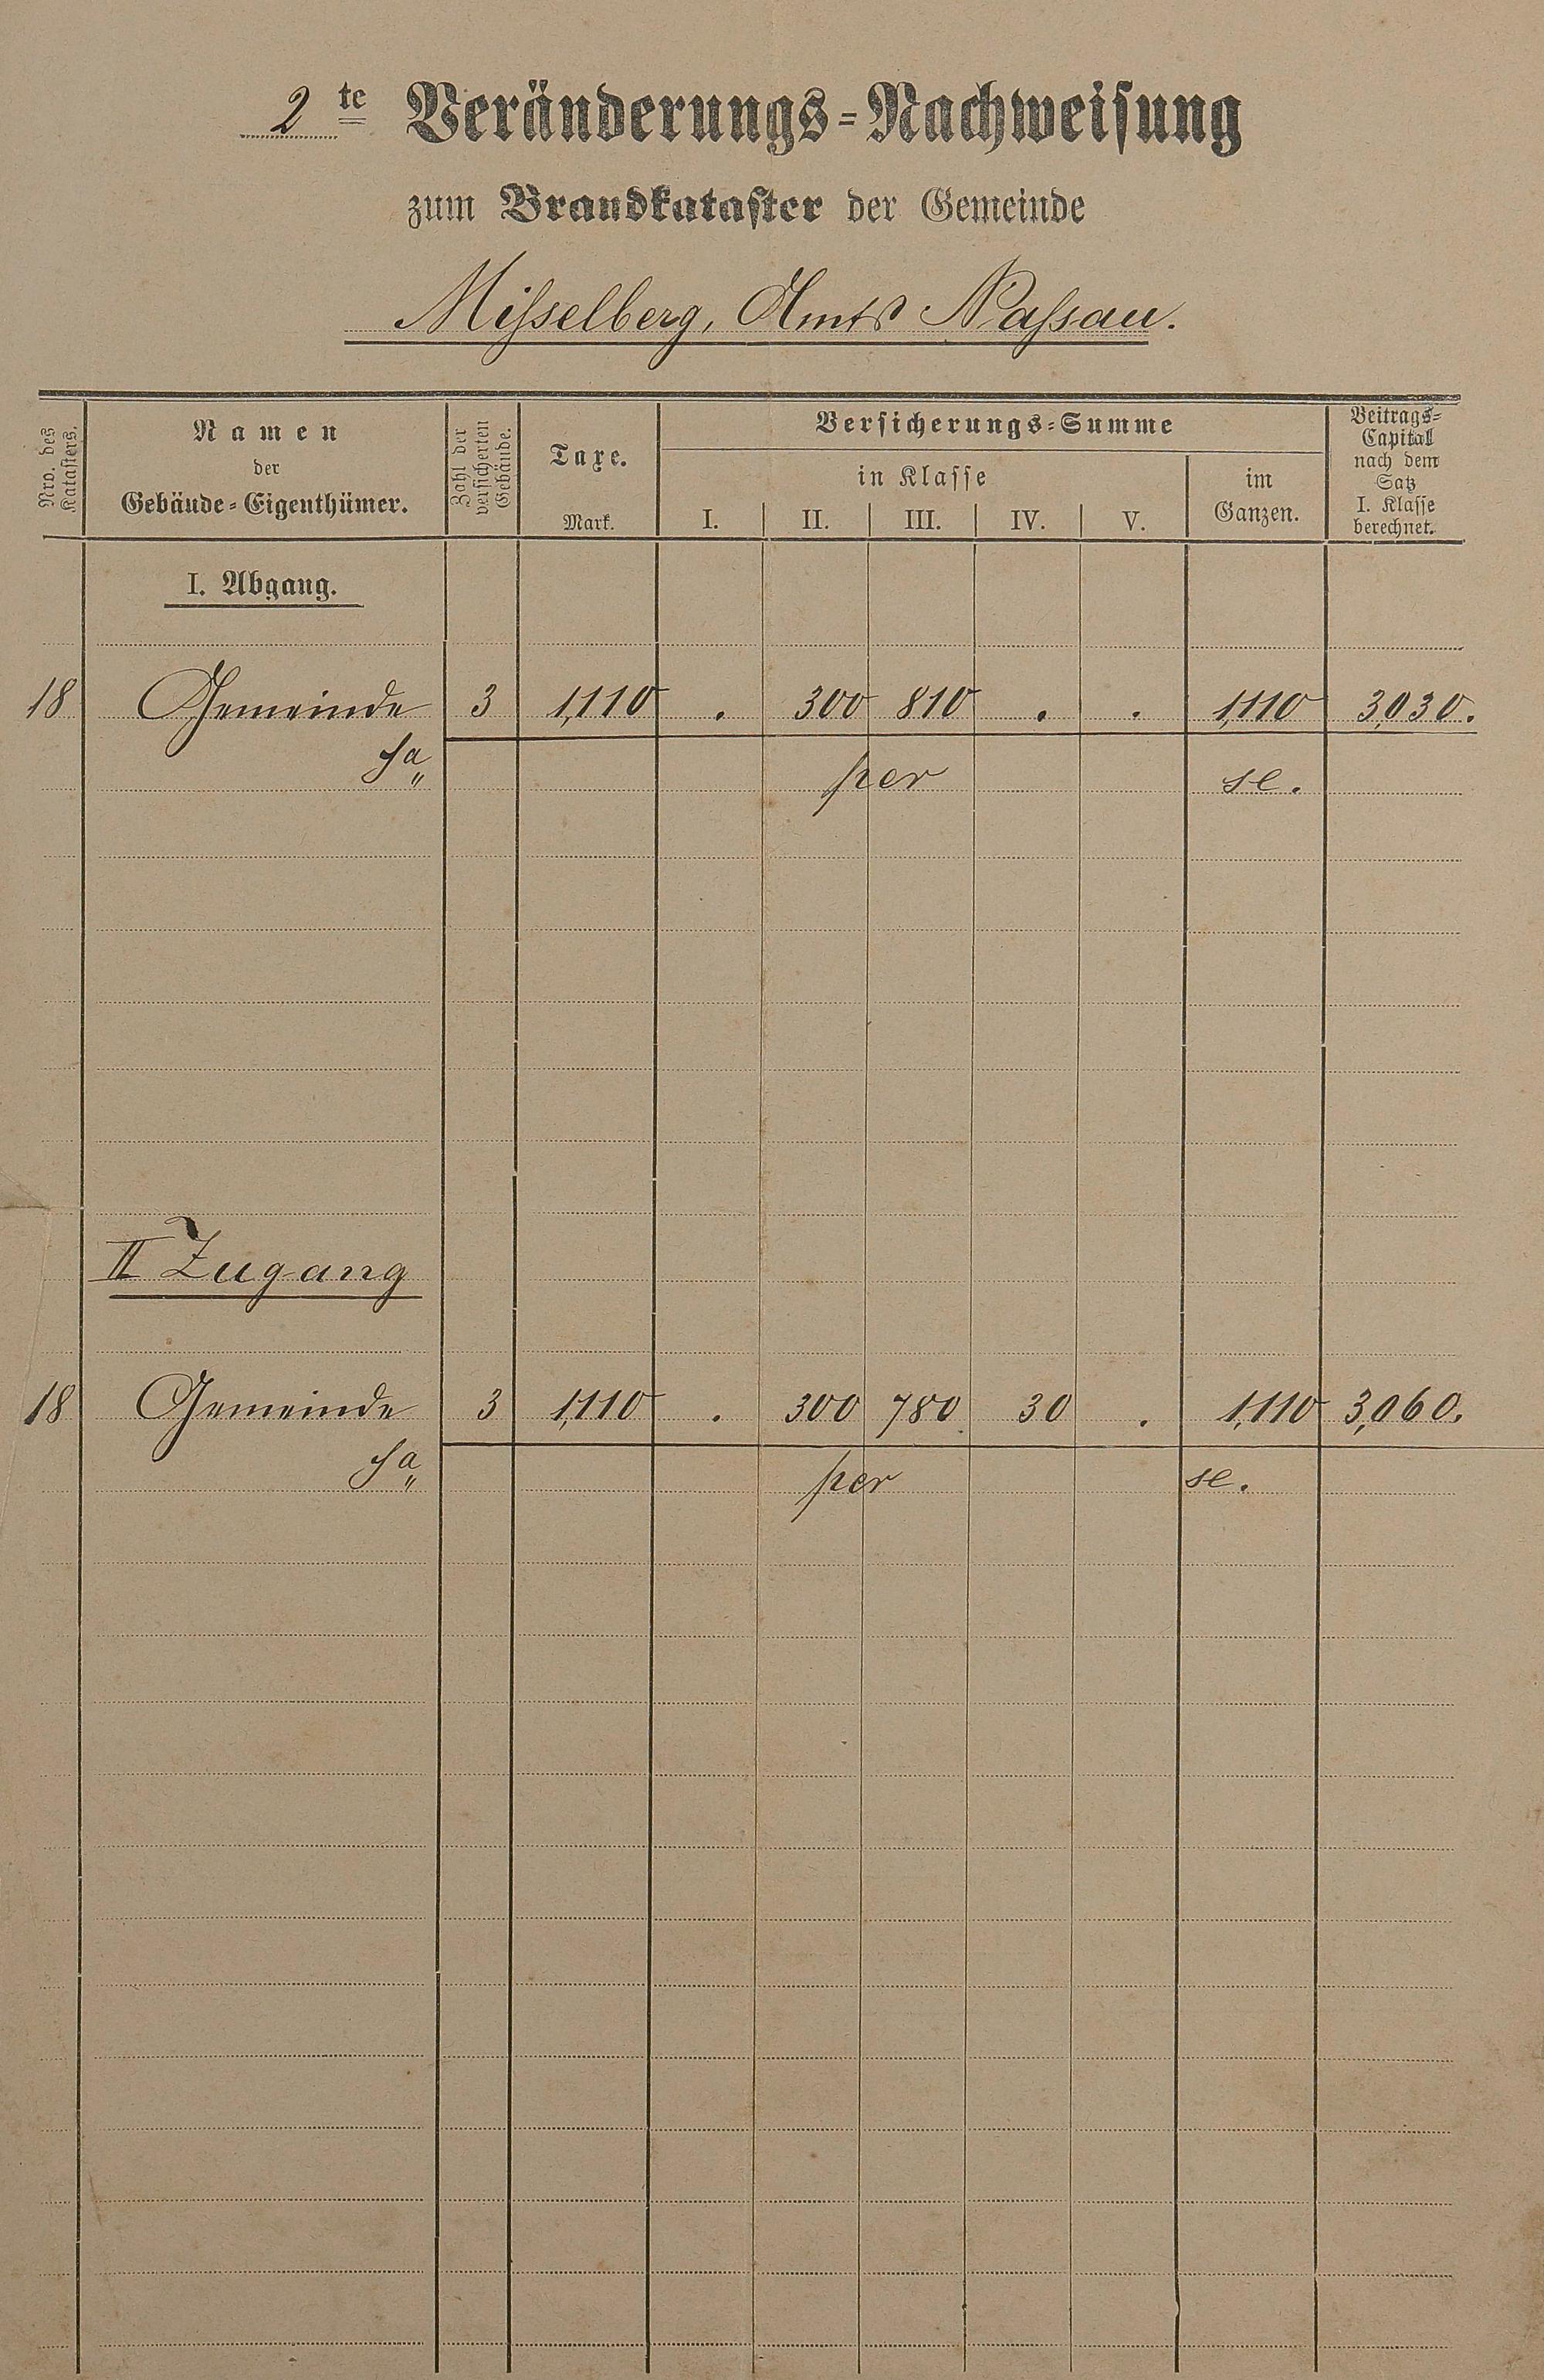 2te Veränderungs-Nachweisung
zum Brandkataster der Gemeinde
Misselberg, Amts Nassau.
Nro. des Katasters.
Namen
der
Gebäude-Eigenthümer.
Zahl der versicherten Gebäude.
Taxe.
Mark.
Versicherungs-Summe
in Klasse
I. II. III. IV. V.
im
Ganzen.
Beitrags-
Capital
nach dem
Satz
I. Klasse
berechnet.
I. Abgang.
18 Gemeinde 3 1,110 . 300 810 . . 1,110 3,030.
Sa „ per se.
II Zugang
18 Gemeinde 3 1,110 . 300 780 30 . 1,110 3,060.
Sa „ per se.